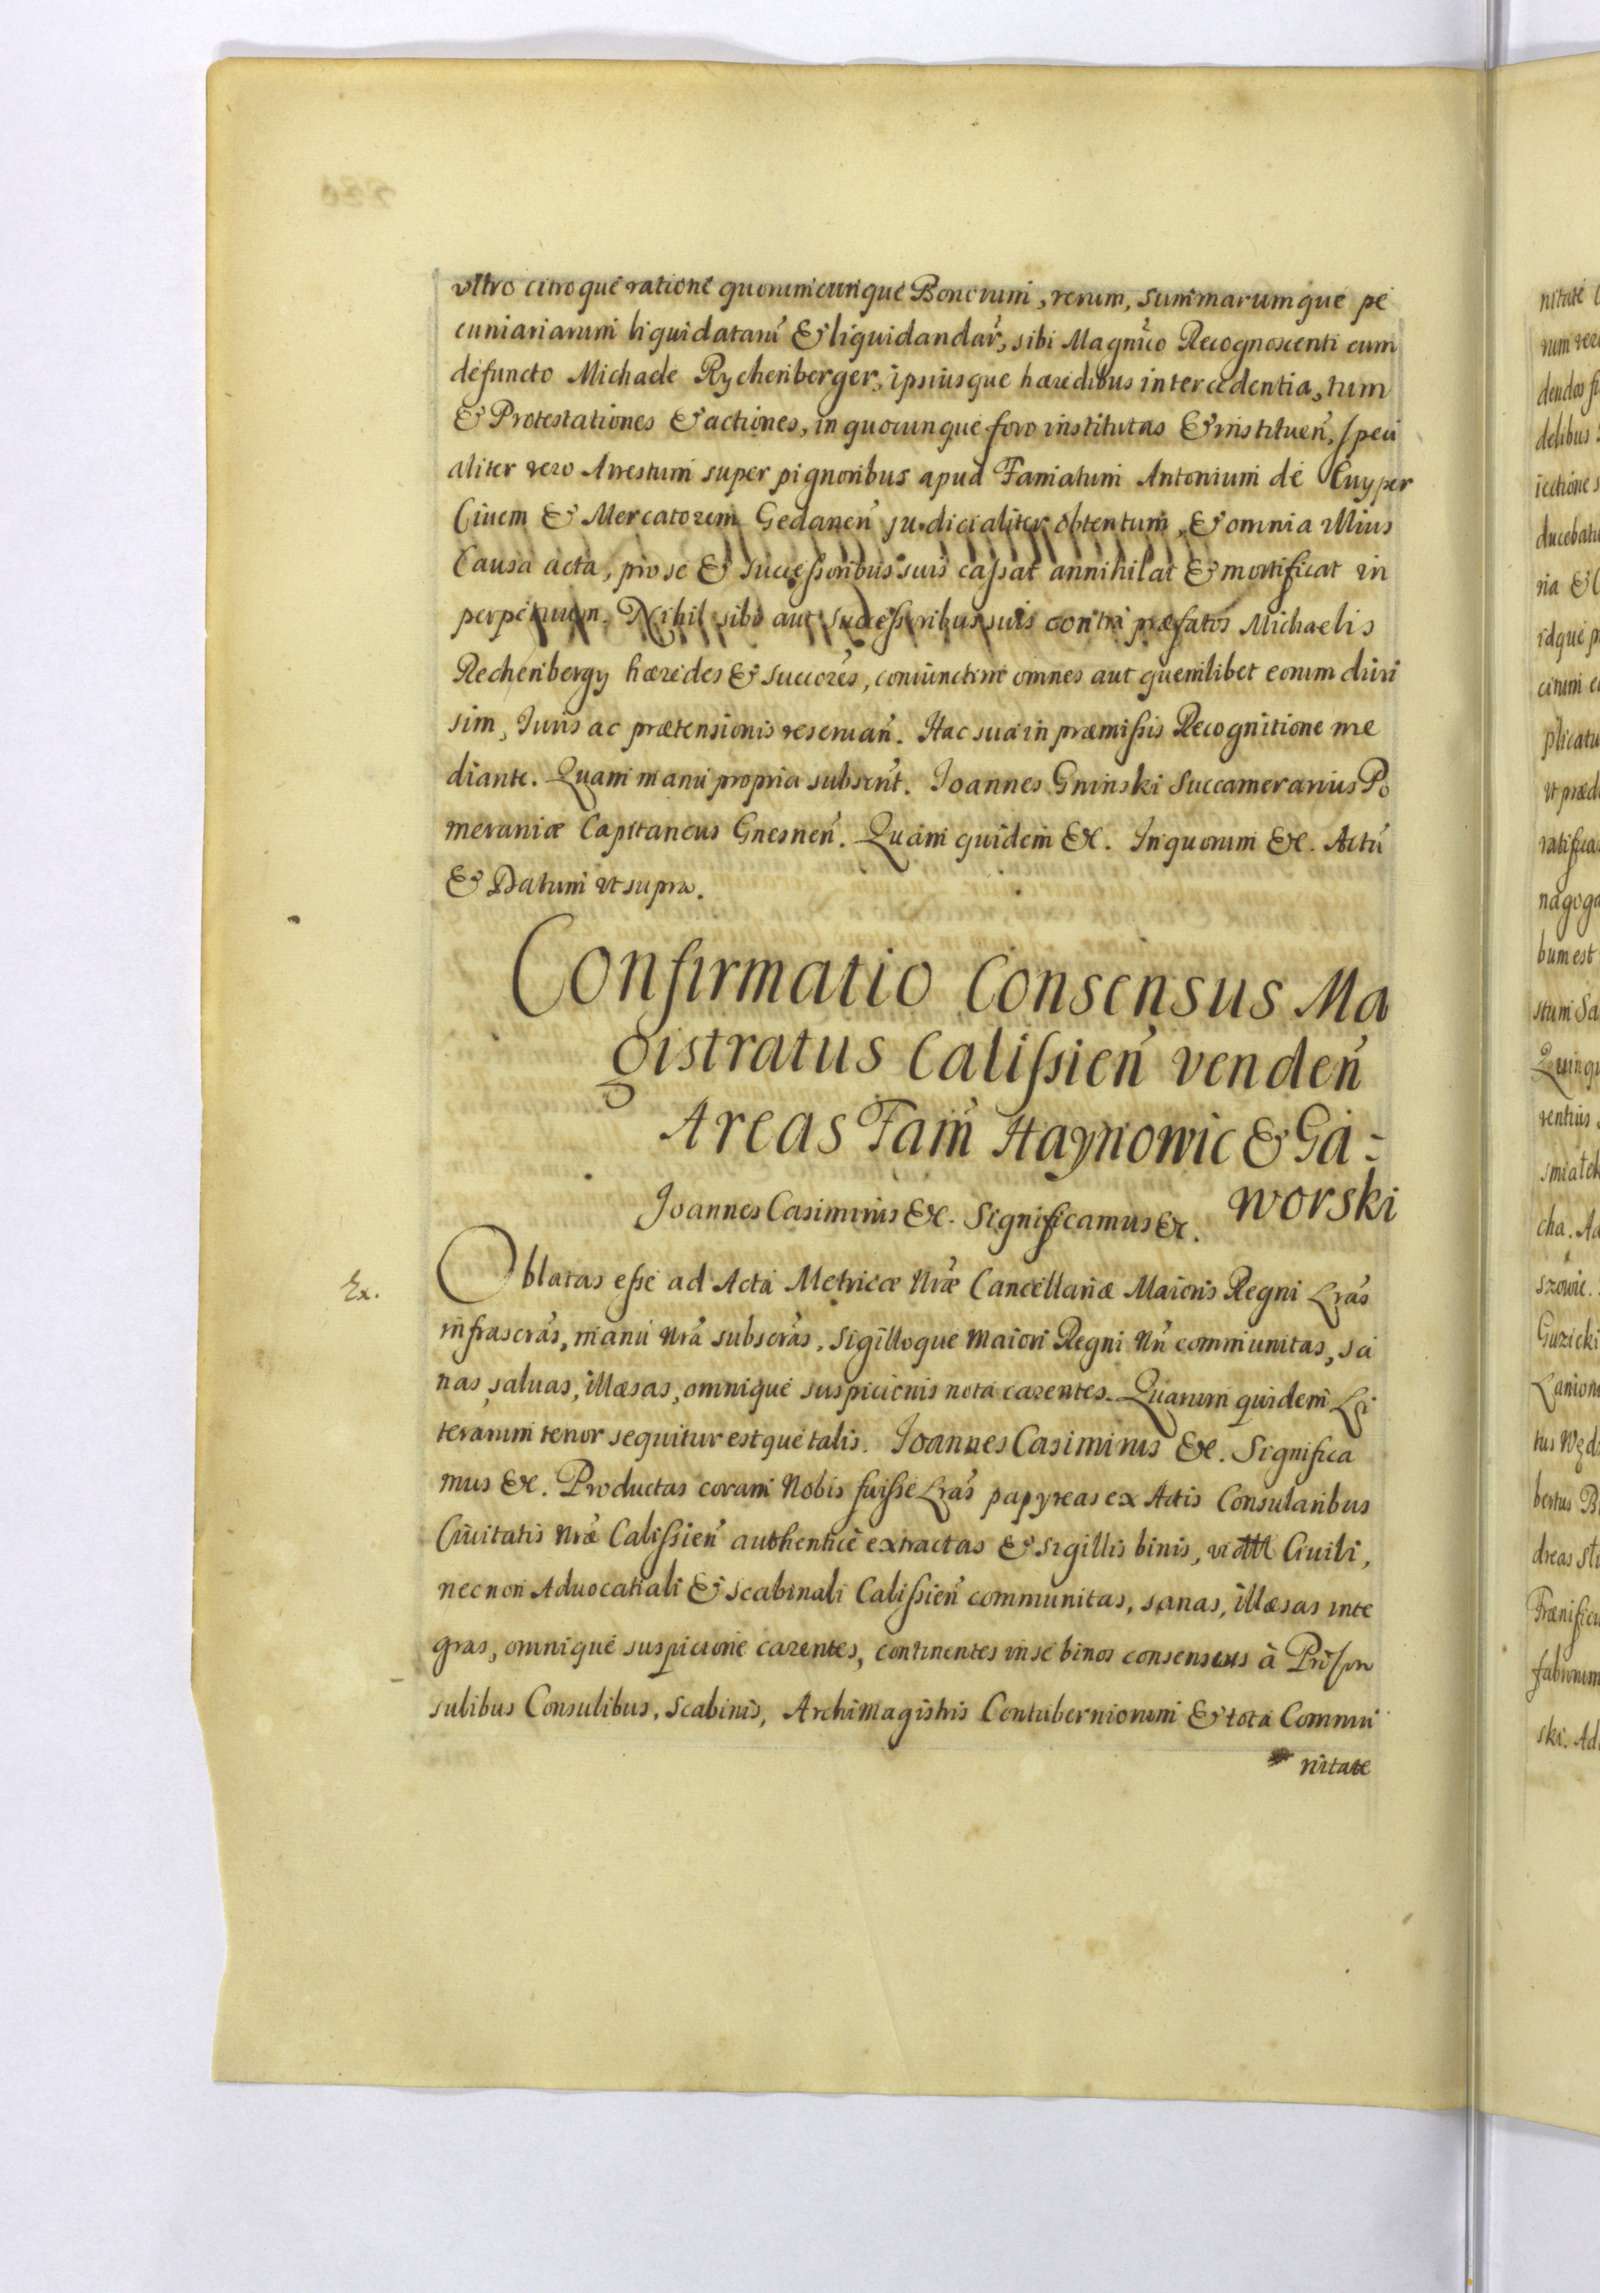 vltro citroque ratione quorumcunque Bonorum, rerum, summarumque pe
cuniariarum liquidatarũ & liquidandar̃, sibi Magnĩco Recognoscenti cum
defuncto Michaele Rychenberger, ipsiusque hæredibus intercedentia, tum
& Protestationes & actiones, in quocunque foro institutas & instituen̄, speci
aliter vero Arrestum super pignoribus apud Famatum Antonium de Cuyper
Ciuem & Mercatorem Gedanen̄ judicialiter obtentum, & omnia illius
Causa acta, pro se & successoribus suis cassat annihilat & mortificat in
perpetuum. Nihil sibi aut successoribus suis contra præfatos Michaelis
Rechenbergy hæredes & succores̃, coniunctim omnes aut quemlibet eorum diui
sim, Juris ac prætensionis reseruan̄. Hac sua in præmissis Recognitione me
diante. Quam manu propria subscrit̃. Joannes Gninski Succamerarius Po
meraniæ Capitaneus Gnesnen̄. Quam quidem &c. In quorum &c. Actũ
& Datum vt supra.
Confirmatio Consensus Ma
gistratus Calissien̄ venden̄
Areas Fam̃ Haynowic & Ga-
worski
Joannes Casimirus &c. Significamus &c.
Ex.
Oblatas esse ad Acta Metricæ Nr̃æ Cancellariæ Maioris Regni Lr̃as
infrascr̃as, manu Nr̃a subscr̃as, sigilloque Maiori Regni Nr̃i communitas, sa
nas, saluas, illæsas, omnique suspicionis nota carentes. Quarum quidem Li
terarum tenor sequitur estque talis. Joannes Casimirus &c. Significa
mus &c. Productas coram Nobis fuisse Lr̃as papyreas ex Actis Consularibus
Ciuitatis Nr̃æ Calissien̄ authentice extractas & sigillis binis, Ciuili,
necnon Aduocatiali & scabinali Calissien̄ communitas, sanas, illæsas inte
gras, omnique suspicione carentes, continentes in se binos consensus à
sulibus Consulibus, Scabinis, Archimagistris Contuberniorum & tota Commu
nitate